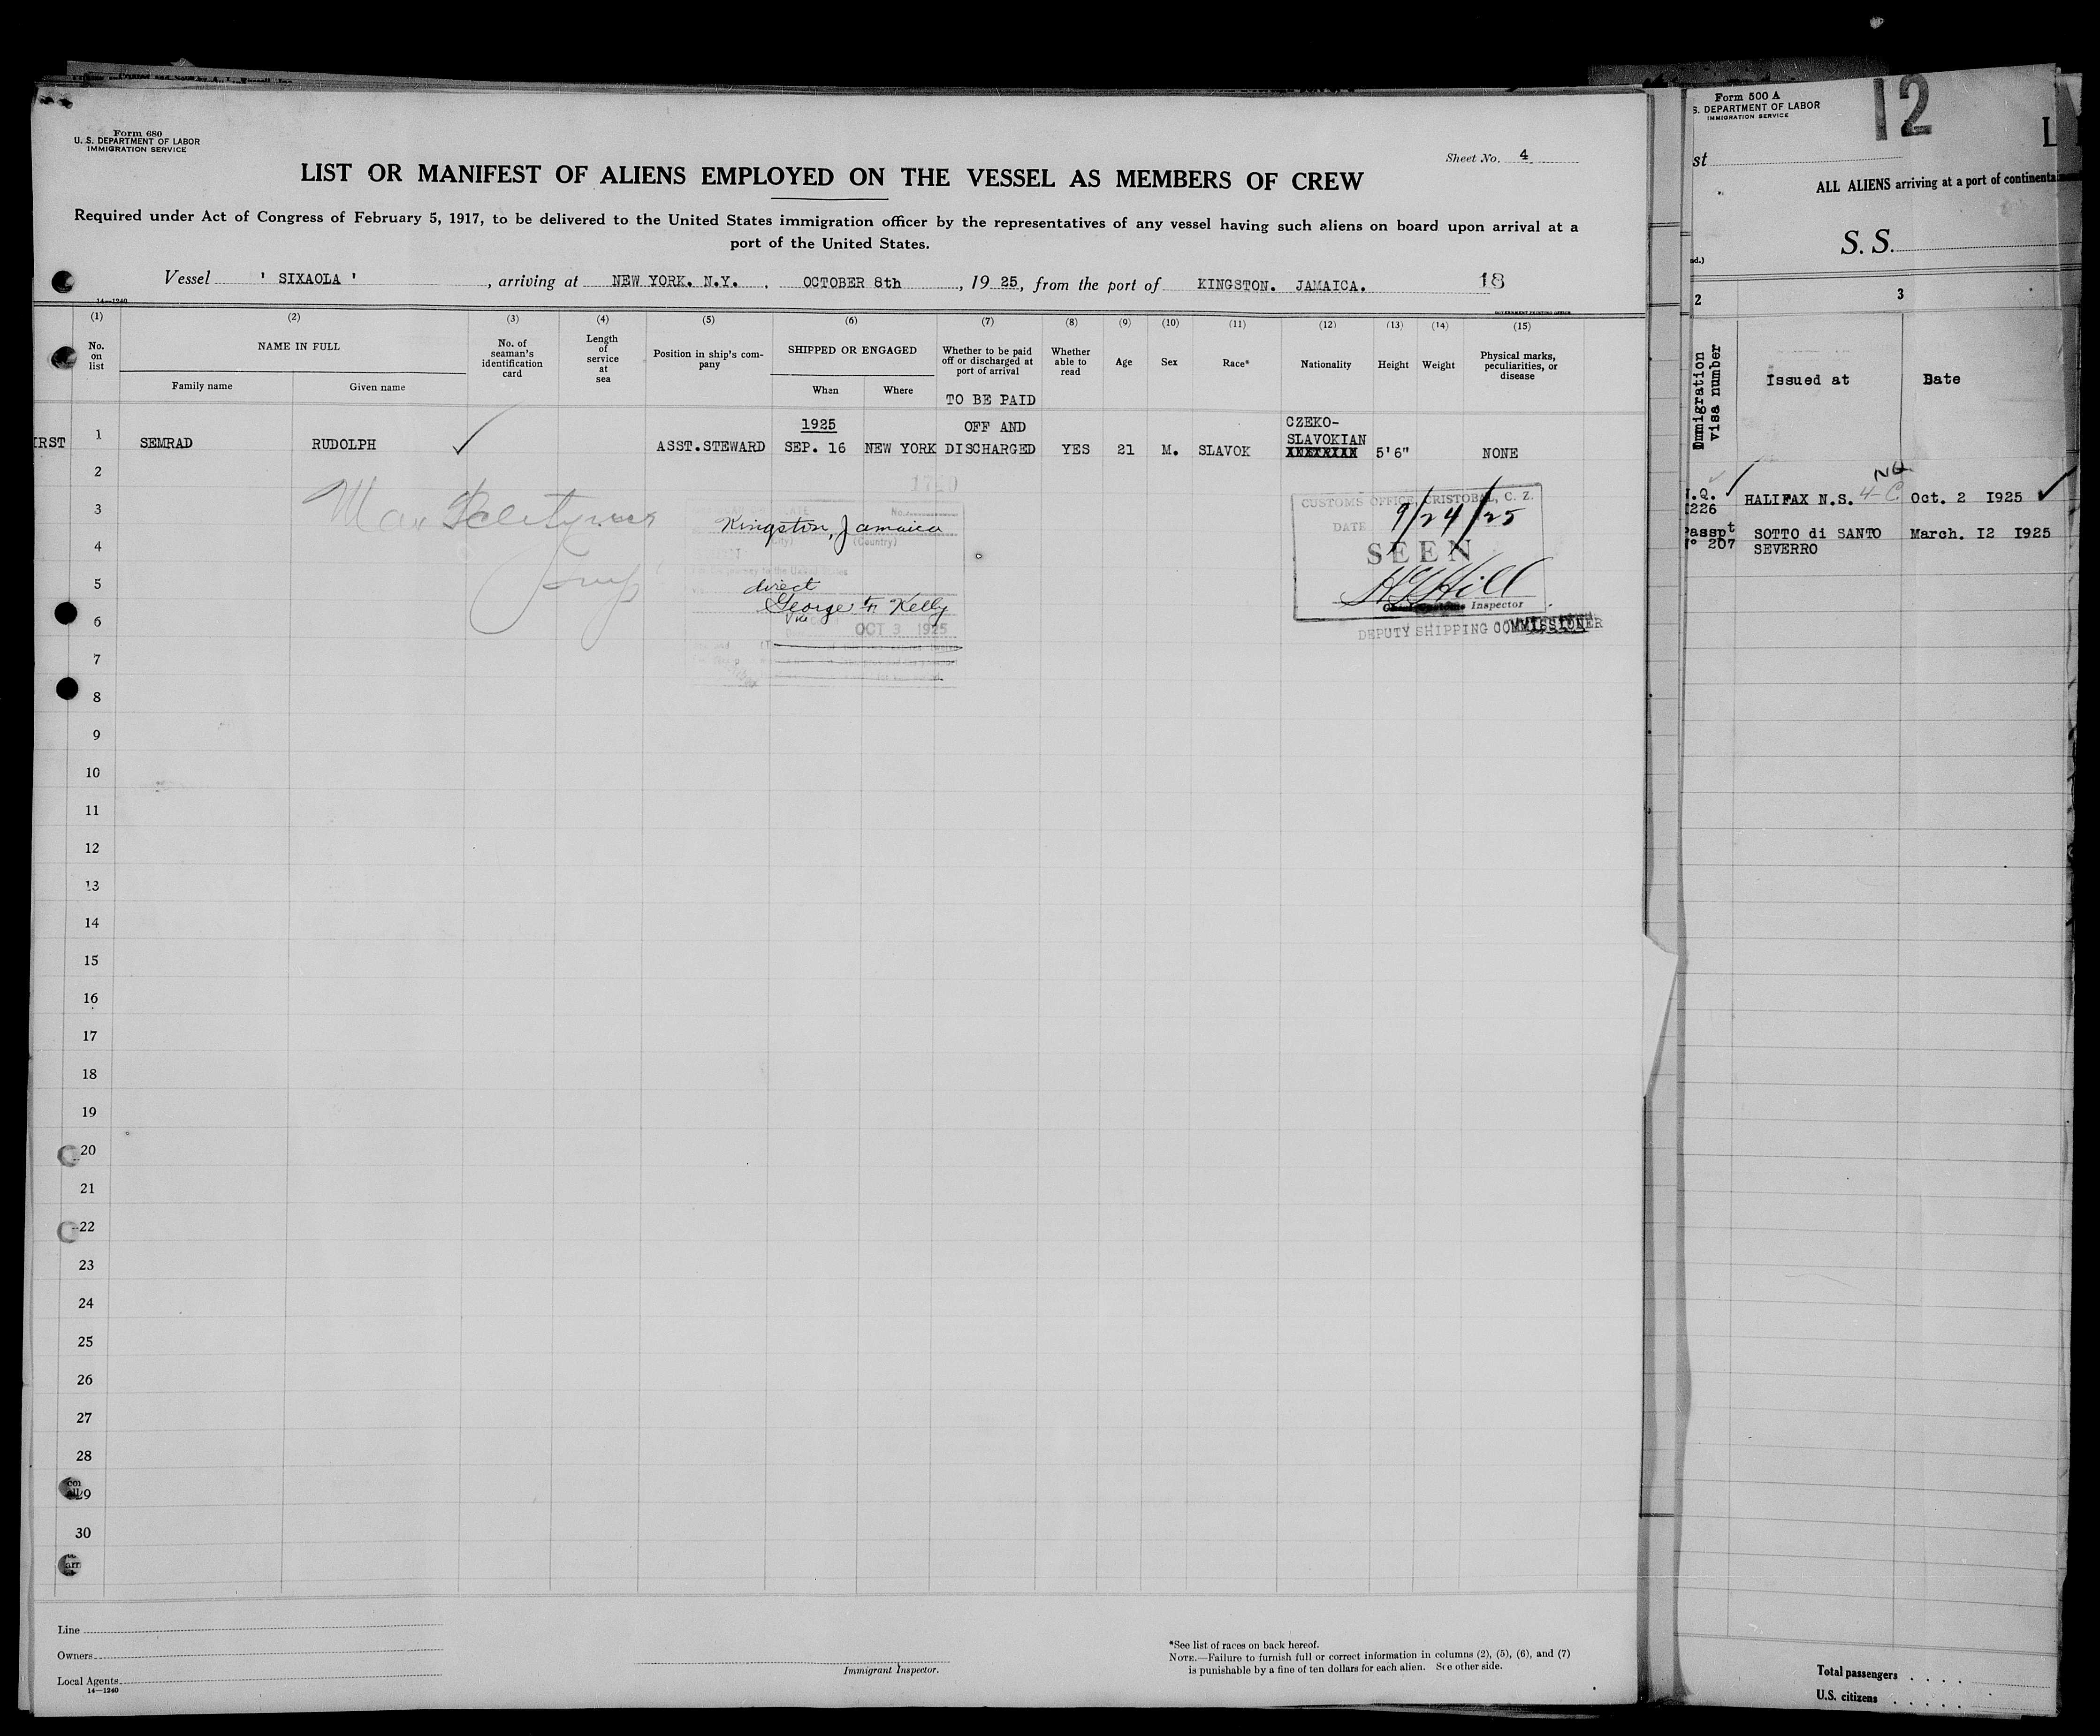 Form 680
U. S. DEPARTMENT OF LABOR
IMMIGRATION SERVICE
Sheet No. 4
LIST OR MANIFEST OF ALIENS EMPLOYED ON THE VESSEL AS MEMBERS OF CREW
Required under Act of Congress of February 5, 1917, to be delivered to the United States immigration officer by the representatives of any vessel having such aliens on board upon arrival at a
port of the United States.
Vessel ' SIXAOLA ' , arriving at NEW YORK. N.Y. , OCTOBER 8th , 19 25, from the port of KINGSTON. JAMAICA. 18
14—1240
GOVERNMENT PRINTING OFFICE
(1) (2) (3) (4) (5) (6) (7) (8) (9) (10) (11) (12) (13) (14) (15)
No. on list
NAME IN FULL
Family name Given name
No. of seaman's identification card
Length of service at sea
Position in ship's com-pany
SHIPPED OR ENGAGED
When Where
Whether to be paid off or discharged at port of arrival
Whether able to read
Age
Sex
Race*
Nationality
Height
Weight
Physical marks, peculiarities, or disease
TO BE PAID
1925 OFF AND CZEKO-
IRST 1 SEMRAD RUDOLPH ✓ ASST.STEWARD SEP. 16 NEW YORK DISCHARGED YES 21 M. SLAVOK SLAVOKIAN 5'6" NONE
2
3
4
5
6
7
8
9
10
11
12
13
14
15
16
17
18
19
20
21
22
23
24
25
26
27
28
29
30
No.
Kingston, Jamaica
(City) (Country)
direct
George Kelly
OCT 3 1925
CUSTOMS OFFICE, CRISTOBAL, C. Z.
DATE 9/24/25
SEEN
Hill
Inspector
DEPUTY SHIPPING COMMISSIONER
Line
Owners
Local Agents
14—1240
Immigrant Inspector.
*See list of races on back hereof.
NOTE.—Failure to furnish full or correct information in columns (2), (5), (6), and (7)
is punishable by a fine of ten dollars for each alien. See other side.
Form 500 A
S. DEPARTMENT OF LABOR
IMMIGRATION SERVICE
12
st
ALL ALIENS arriving at a port of continental
S. S.
2 3
Immigration visa number
Issued at Date
.Q. ✓ HALIFAX N.S. Oct. 2 I925 ✓
226
Passpt SOTTO di SANTO March. I2 I925
N° 207 SEVERRO
Total passengers
U.S. citizens